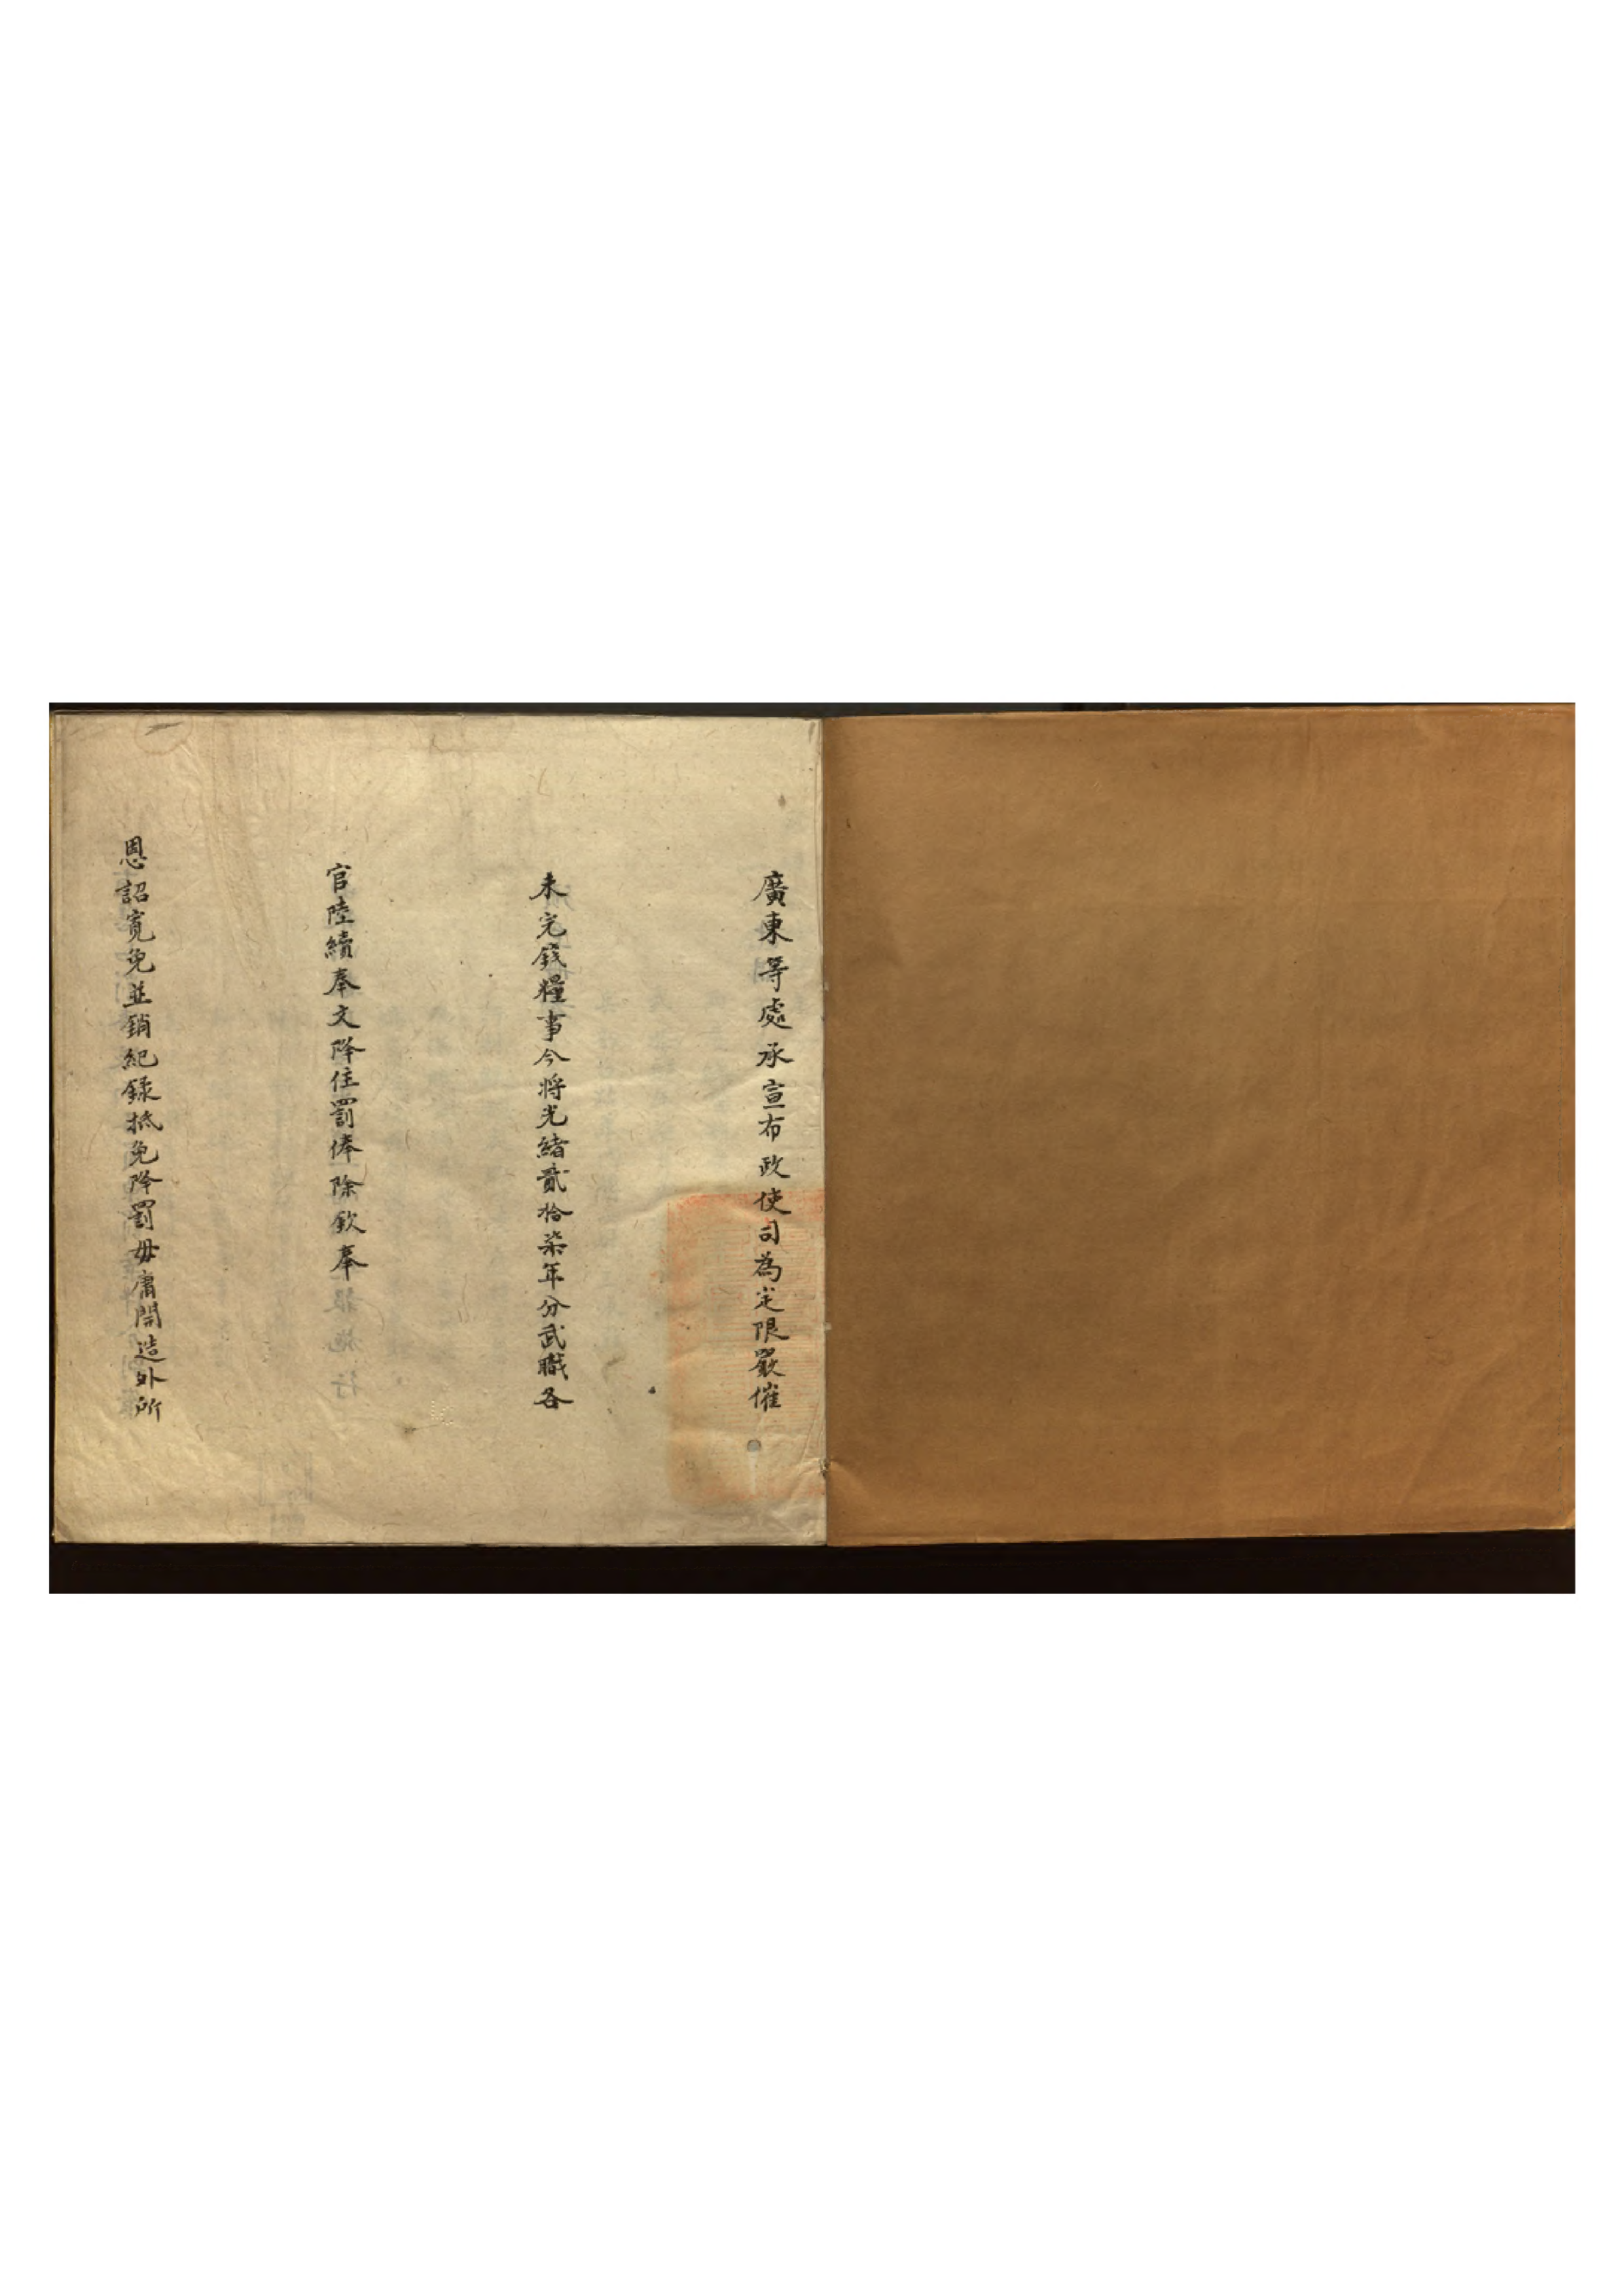 廣東等處承宣布政使司為定限嚴催
未完錢糧事今將光緒貳拾柒年分武職各
官陸續奉文降住罰俸除欽奉
恩詔寬免並銷紀錄抵免降罰毋庸開造外所